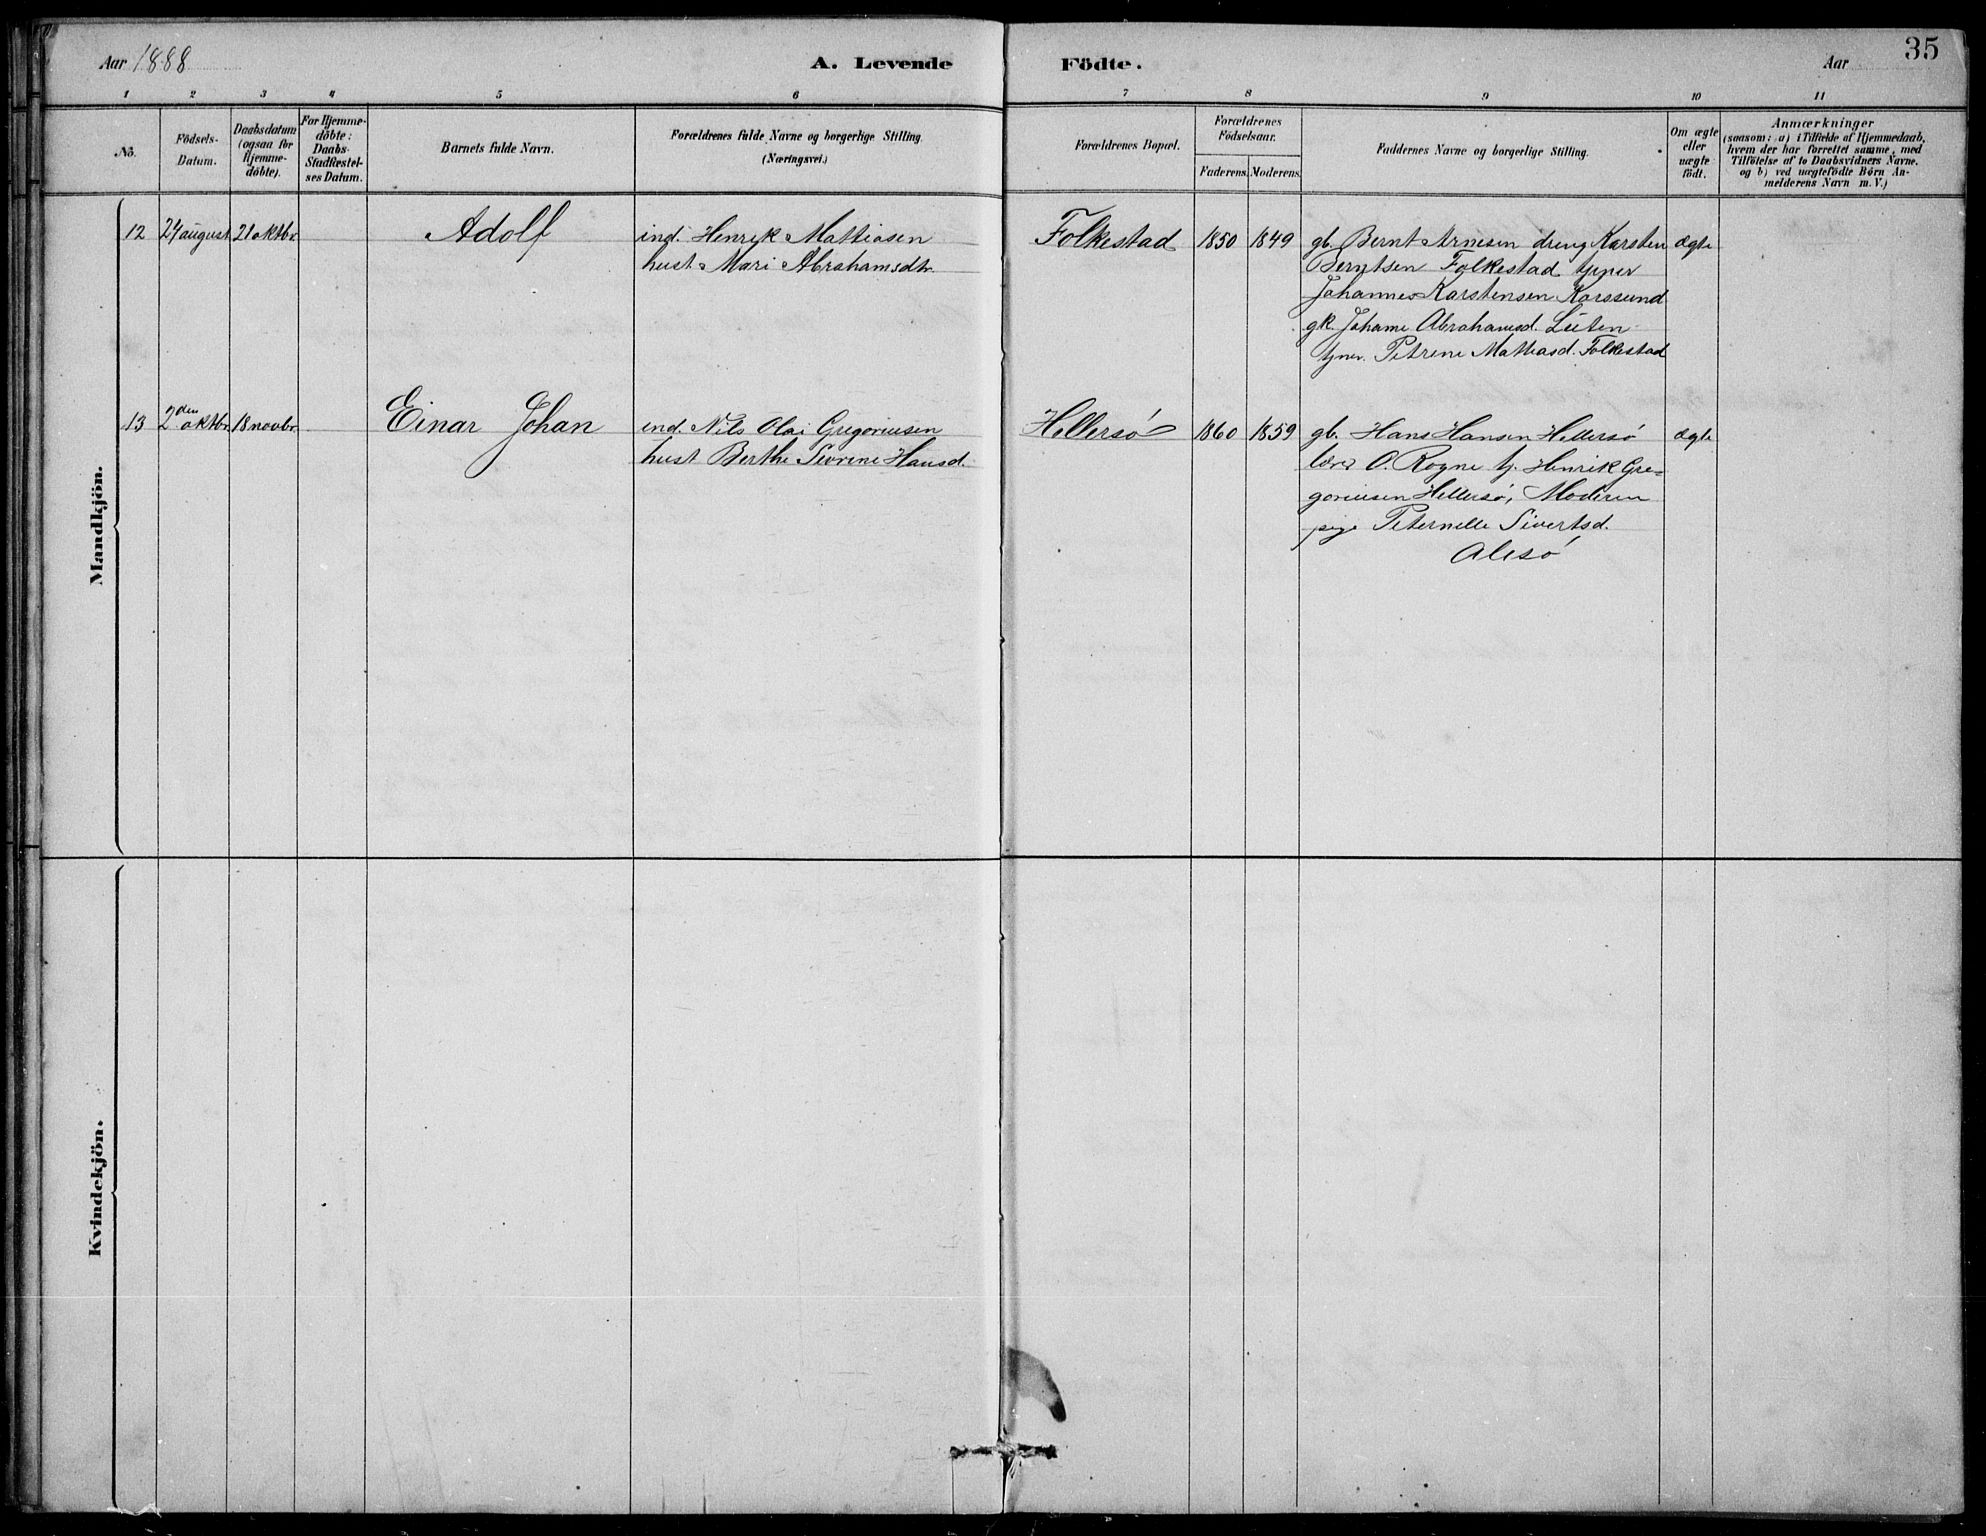 35
Aar 1888
A. Levende Födte.
Aar
1 2 3 4 5 6 7 8 9 10 11
No.
Födsels-
Datum.
Daabsdatum
(ogsaa for
Hjemme-
döbte).
For Hjemme-
döbte:
Daabs-
Stadfæstel-
ses Datum.
Barnets fulde Navn.
Forældrenes fulde Navne og borgerlige Stilling.
(Næringsvei.)
Forældrenes Bopæl.
Forældrenes
Födselsaar.
Faderens. Moderens.
Faddernes Navne og borgerlige Stilling.
Om ægte
eller
uægte
födt.
Anmærkninger
(saasom: a) i Tilfælde af Hjemmedaab,
hvem der har forrettet samme, med
Tilföielse af to Daabsvidners Navne.
og b) ved uægtefödte Börn An-
melderens Navn m. V.)
Mandkjön.
12 24 august 21 oktbr. Adolf ind. Henrik Mattiasen Folkestad 1850 1849 gb. Bernt Arnesen dreng Karsten ægte
hust. Mari Abrahamsdtr. Berntsen Folkestad tjener
Johannes Karstensen Korssund
gk. Johanne Abrahamsd. Liiten
tjner. Petrine Mattiasd. Folkestad
13 2den oktbr. 18 novbr. Einar Johan ind. Nils Olai Gregoriusen Hellersö 1860 1859 gb. Hans Hansen Hellersö ægte
hust Berthe Severine Hansd. lærer O. Rogne tj. Henrik Gre-
goriusen Hellersö, Moderen
pige Peternelle Sivertsd.
Alesö
Kvindekjön.